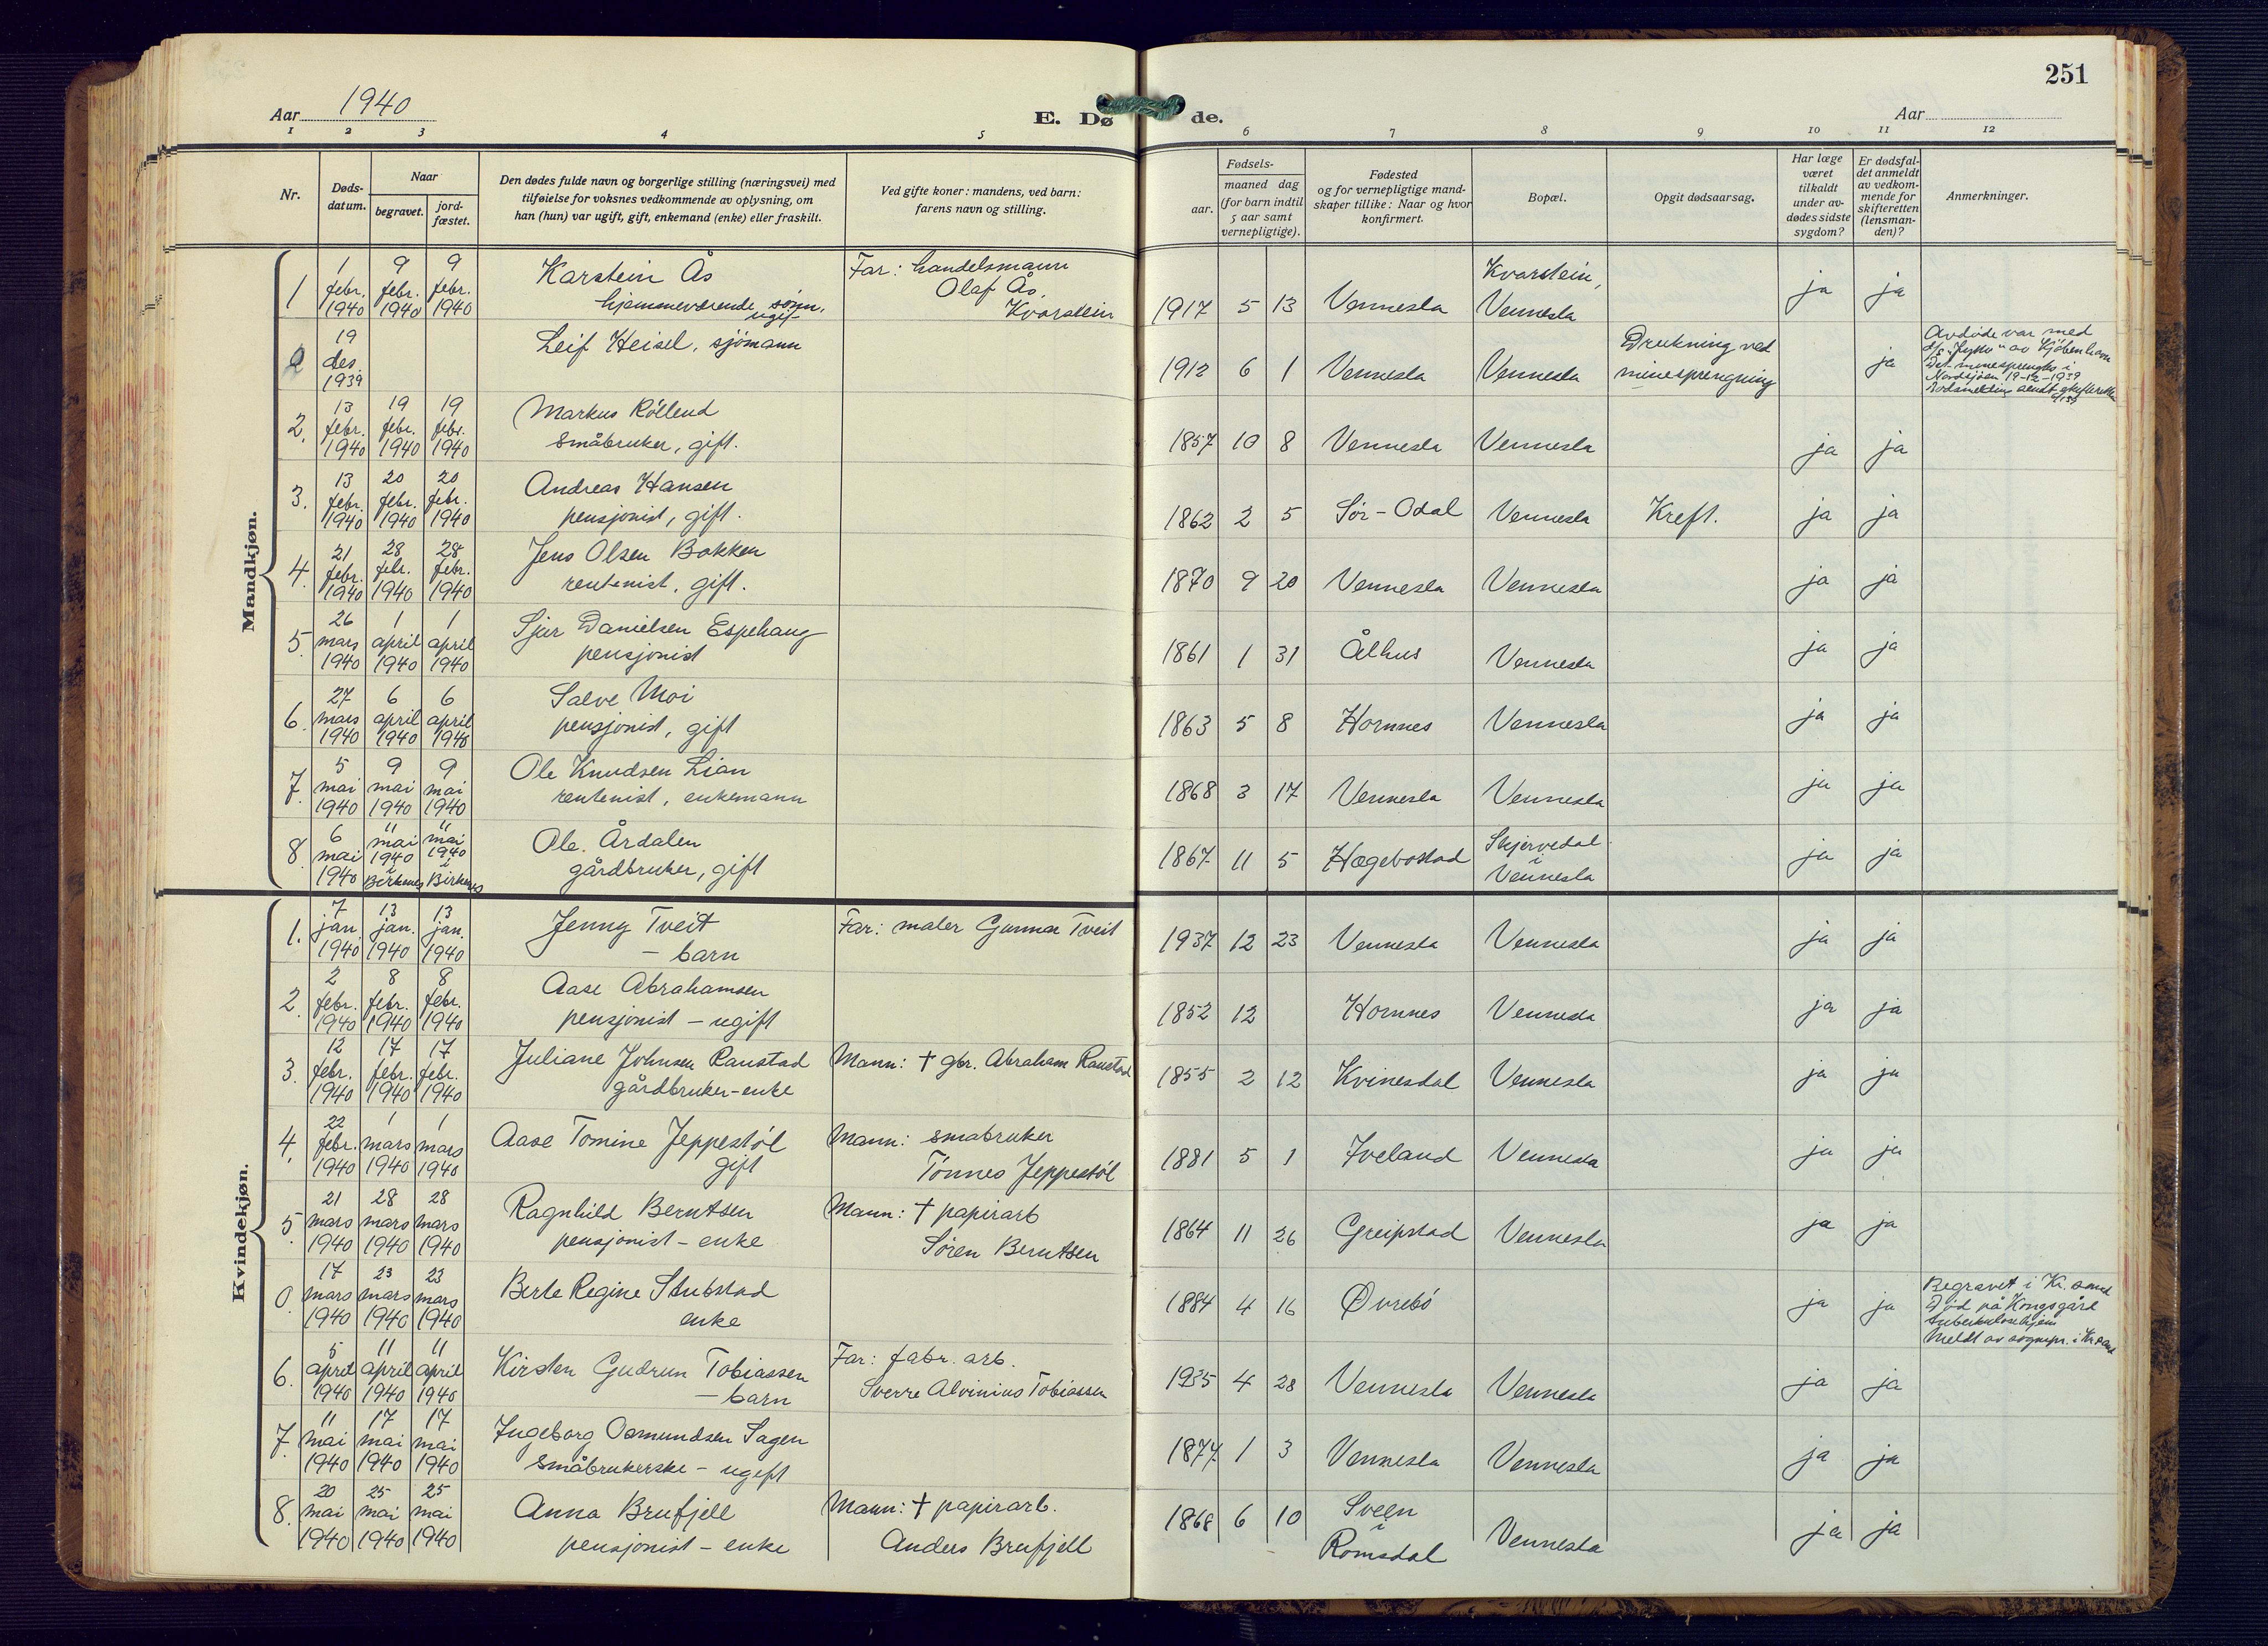 251
Aar 1940
E. Dø de.
Aar
1 2 3 4 5 6 7 8 9 10 11 12
Nr.
Døds-
datum.
Naar
begravet.
jord-
fæstet.
Den dødes fulde navn og borgerlige stilling (næringsvei) med
tilføielse for voksnes vedkommende av oplysning, om
han (hun) var ugift, gift, enkemand (enke) eller fraskilt.
Ved gifte koner: mandens, ved barn:
farens navn og stilling.
Fødsels-
aar.
maaned dag
(for barn indtil
5 aar samt
vernepligtige).
Fødested
og for vernepligtige mand-
skaper tillike: Naar og hvor
konfirmert.
Bopæl.
Opgit dødsaarsag.
Har læge
været
tilkaldt
under av-
dødes sidste
sygdom?
Er dødsfal-
det anmeldt
av vedkom-
mende for
skifteretten
(lensman-
den)?
Anmerkninger.
Mandkjøn.
1 1 febr. 1940 9 febr. 1940 9 febr. 1940 Karstein Ås
hjemmeværende sønn,
ugift
Far: handelsmann
Olaf Ås,
Kvarstein
1917 5 13 Vennesla Kvarstein,
Vennesla ja ja
19 des. 1939 Leif Heisel, sjömann
1912 6 1 Vennesla Vennesla Drukning ved
minesprengning ja
Avdøde var med
av Kjöbenhavn
Det minesprengtes i
Nordsjøen 19-12-1939
2. 13 febr. 1940 19 febr. 1940 19 febr. 1940 Markus Röllend
småbruker, gift.
1857 10 8 Vennesla Vennesla ja ja
3. 13 febr. 1940 20 febr. 1940 20 febr. 1940 Andreas Hansen
pensjonist, gift.
1862 2 5 Sör-Odal Vennesla Kreft. ja ja
4. 21 febr. 1940 28 febr. 1940 28 febr. 1940 Jens Olsen Bakken
rentenist, gift.
1870 9 20 Vennesla Vennesla ja ja
5. 26 mars 1940 1 april 1940 1 april 1940 Sjur Danielsen Espehaug
pensjonist
1861 1 31 Ålhus Vennesla ja ja
6. 27 mars 1940 6 april 1940 6 april 1940 Salve Moi
pensjonist, gift
1863 5 8 Hornnes Vennesla ja ja
7. 5 mai 1940 9 mai 1940 9 mai 1940 Ole Knudsen Lian
rentenist, enkemann
1868 3 17 Vennesla Vennesla ja ja
8. 6 mai 1940 11 mai 1940 i Birkenes 11 mai 1940 i Birkenes Ole Årdalen
gårdbruker, gift
1867 11 5 Hægebostad Skjervedal
i
Vennesla ja ja
Kvindekjøn.
1. 7 jan. 1940 13 jan. 1940 13 jan. 1940 Jenny Tveit
- barn
Far: maler Gunnar Tveit
1937 12 23 Vennesla Vennesla ja ja
2. 2 febr. 1940 8 febr. 1940 8 febr. 1940 Aase Abrahamsen
pensjonist - ugift
1852 12 Hornnes Vennesla ja ja
3. 12 febr. 1940 17 febr. 1940 17 febr. 1940 Juliane Johnsen Raustad
gårdbruker-enke
Mann: † gbr. Abraham Raustad
1855 2 12 Kvinesdal Vennesla ja ja
4. 22 febr. 1940 1 mars 1940 1 mars 1940 Aase Tomine Jeppestöl
gift
Mann: småbruker
Tönnes Jeppestöl
1881 5 1 Iveland Vennesla ja ja
5. 21 mars 1940 28 mars 1940 28 mars 1940 Ragnhild Berntsen
pensjonist - enke
Mann: † papirarb
Sören Berntsen
1864 11 26 Greipstad Vennesla ja ja
0. 17 mars 1940 23 mars 1940 23 mars 1940 Berte Regine Stubstad
enke
1884 4 16 Øvrebö ja ja
Begravet i Kr.sand
Död på Kongsgård
tuberkulosehjem
Meldt av sognepr. i Kr.sand
6. 5 april 1940 11 april 1940 11 april 1940 Kirsten Gudrun Tobiassen
- barn
Far: fabr. arb.
Sverre Alvinius Tobiassen
1935 4 28 Vennesla Vennesla ja ja
7. 11 mai 1940 17 mai 1940 17 mai 1940 Ingeborg Osmundsen Sagen
småbrukerske - ugift
1877 1 3 Vennesla Vennesla ja ja
8. 20 mai 1940 25 mai 1940 25 mai 1940 Anna Brufjell
pensjonist - enke
Mann: † papirarb.
Anders Brufjell
1868 6 10 Sveen
i
Romsdal Vennesla ja ja